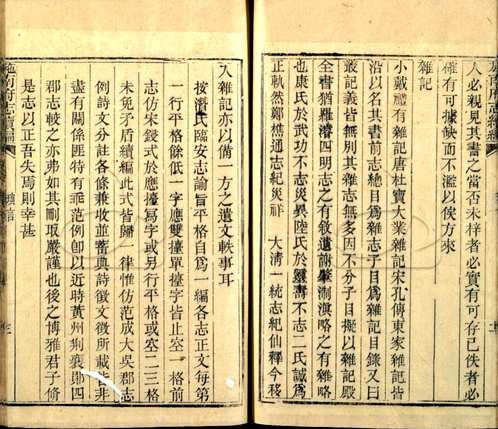 人必親見其書之當否未梓者必實有可存已佚者必
確有可據缺而不濫以俟方來
雜記
小戴禮有雜記唐杜寶大業雜記宋孔傳東家雜記皆
沿以名其書前志總目為雜志子目為雜記目錄又曰
叢記義皆無別其雜志無多因不分子目擬以雜記殿
全書猶羅濬四明志之有敘遺謝肇淛滇略之有雜略
也康氏於武功不志災異陸氏於靈壽不志二氏誠為
正軌然鄭樵通志紀災祥 大清一統志紀仙釋今移
入雜記亦以備一方之遺文軼事耳
按潛氏臨安志諭旨平格自為一編各志正文每第
一行平格餘低一字應雙擡單擡字皆止空一格前
志仿宋錢式於應擡寫字或另行平格或空二三格
未免矛盾續編此式皆歸一律惟仿范成大吳郡志
例詩文分註各條兼收並蓄典詩徵文徵所載皆非
盡有關係匪特有乖范例卽以近時黃州荆襄鄖四
郡志較之亦弗如其刪取嚴謹也後之博雅君子脩
是志以正吾失焉則幸甚